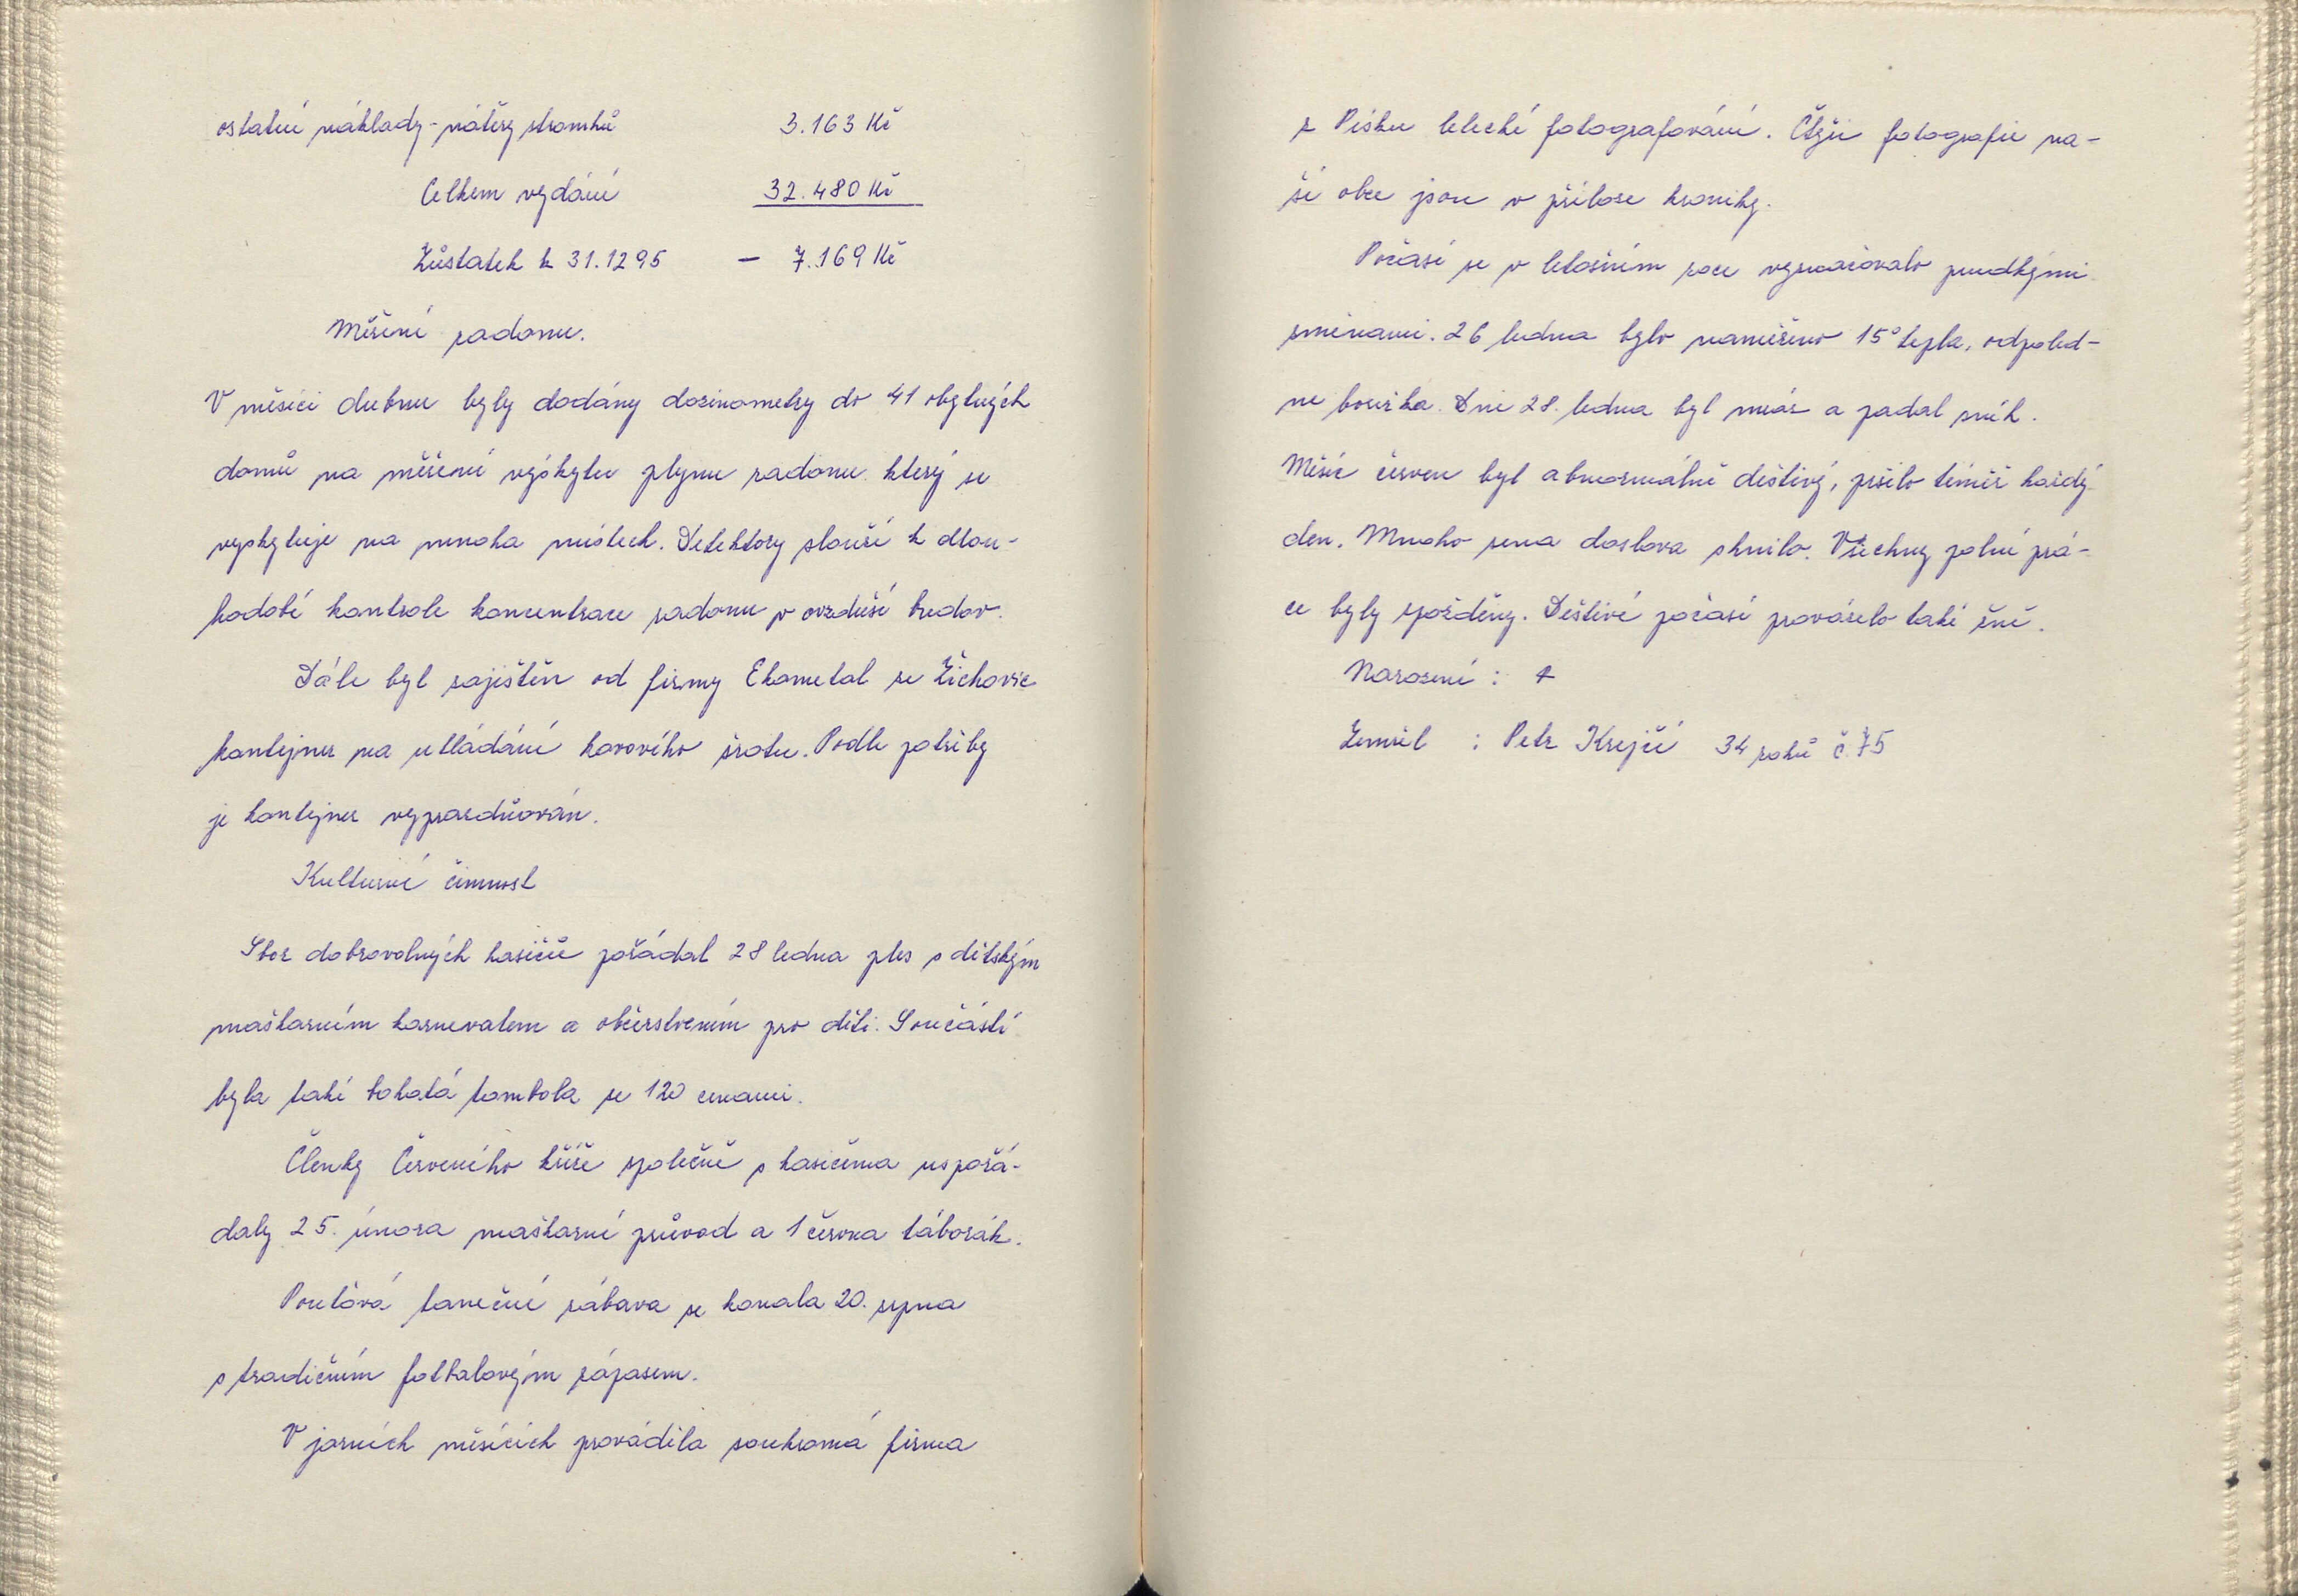 ostatní náklady - nátěry stromků 3.163 Kč
Celkem vydání 32.480 Kč
Zůstatek k 31.12 95 - 7.169 Kč
Měření radonu.
V měsíci dubnu byly dodány dozinometry do 41 obytných
domů na měření výskytu plynu radonu který se
vyskytuje na mnoha místech. Detektory slouží k dlou-
hodobé kontrole koncentrace radonu v ovzduší budov.
Dále byl zajištěn od firmy Ekometal ze Žichovic
kontejner na ukládání kovového šrotu. Podle potřeby
je kontejner vyprazdňován.
Kulturní činnost
Sbor dobrovolných hasičů pořádal 28 ledna ples s dětským
maškarním karnevalem a občerstvením pro děti. Součástí
byla také bohatá tombola se 120 cenami.
Členky Červeného kříže společně s hasičema uspořá-
daly 25. února maškarní průvod a 1 června táborák.
Pouťová taneční zábava se konala 20. srpna
s tradičním fotbalovým zápasem.
V jarních měsících prováděla soukromá firma
z Písku letecké fotografování. Čtyři fotografie na-
ší obce jsou v příloze kroniky.
Počasí se v letošním roce vyznačovalo prudkými
změnami. 26 ledna bylo naměřeno 15° tepla, odpoled-
ne bouřka. Dne 28. ledna byl mráz a padal sníh.
Měsíc červen byl abnormálně deštivý, pršelo téměř každý
den. Mnoho sena doslova shnilo. Všechny polní prá-
ce byly zpožděny. Deštivé počasí provázelo také žně.
Narození :
Zemřel : Petr Krejčí 34 roků č. 75